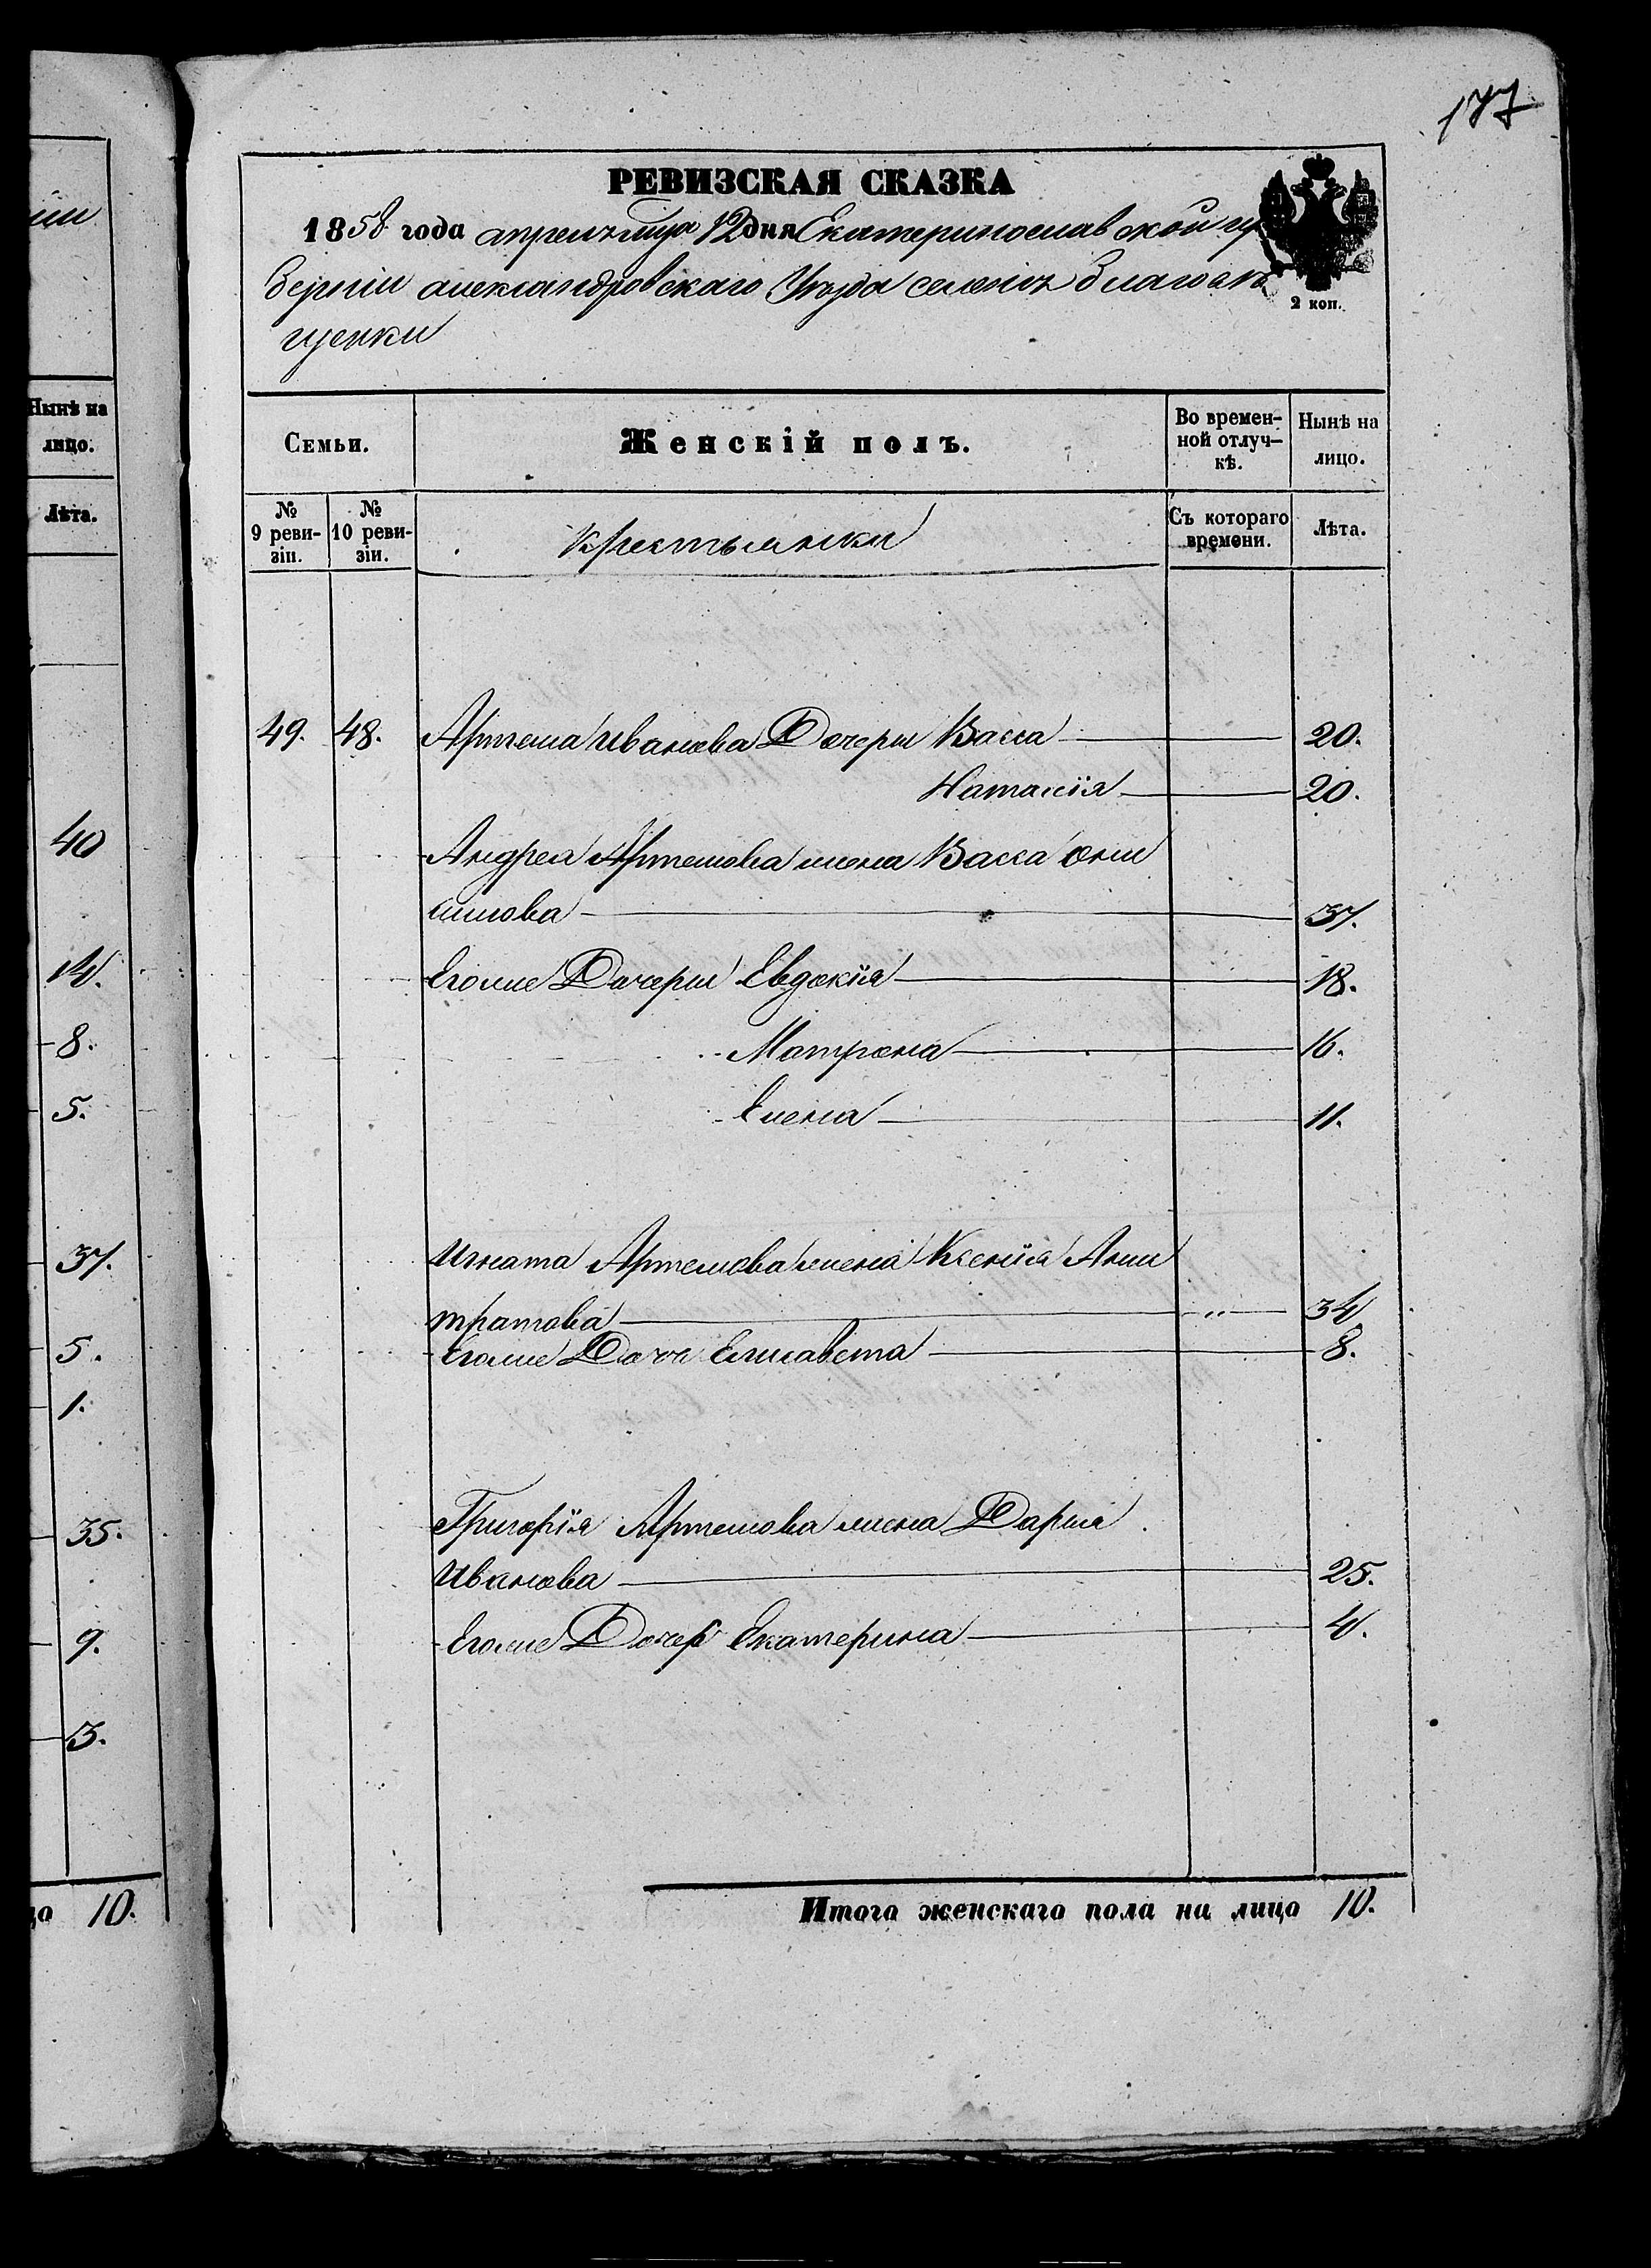 177
іи
Нынѣ на
лицо.
Лѣта.
40
14.
8.
5.
37.
5.
1.
35.
9.
3.
цо 10.
РЕВИЗСКАЯ СКАЗКА
1858 года апреля мца 12 дня Екатеринославской гу
берніи александровскаго Уѣзда селенія благовѣ
щенки
2 коп.
Семьи.
Женскій полъ.
Во времен-
ной отлуч-
кѣ.
Нынѣ на
лицо.
№
9 реви-
зіи.
№
10 реви-
зіи.
крестьянки
Съ котораго
времени.
Лѣта.
49. 48. Артема Иванова Дочери Васса 20.
Натасія 20.
Андрея Артемова жена Васса они
симова 37.
Егоже Дочери Евдокія 18.
Матрона 16.
Елена 11.
Игната Артемова жена Ксенія Анти
тратова " 34
Егоже Дочь Елисавета 8.
Григорія Артемова жена Дарья
Иванова 25.
Егоже Дочер Екатерина 4.
Итого женскаго пола на лицо 10.